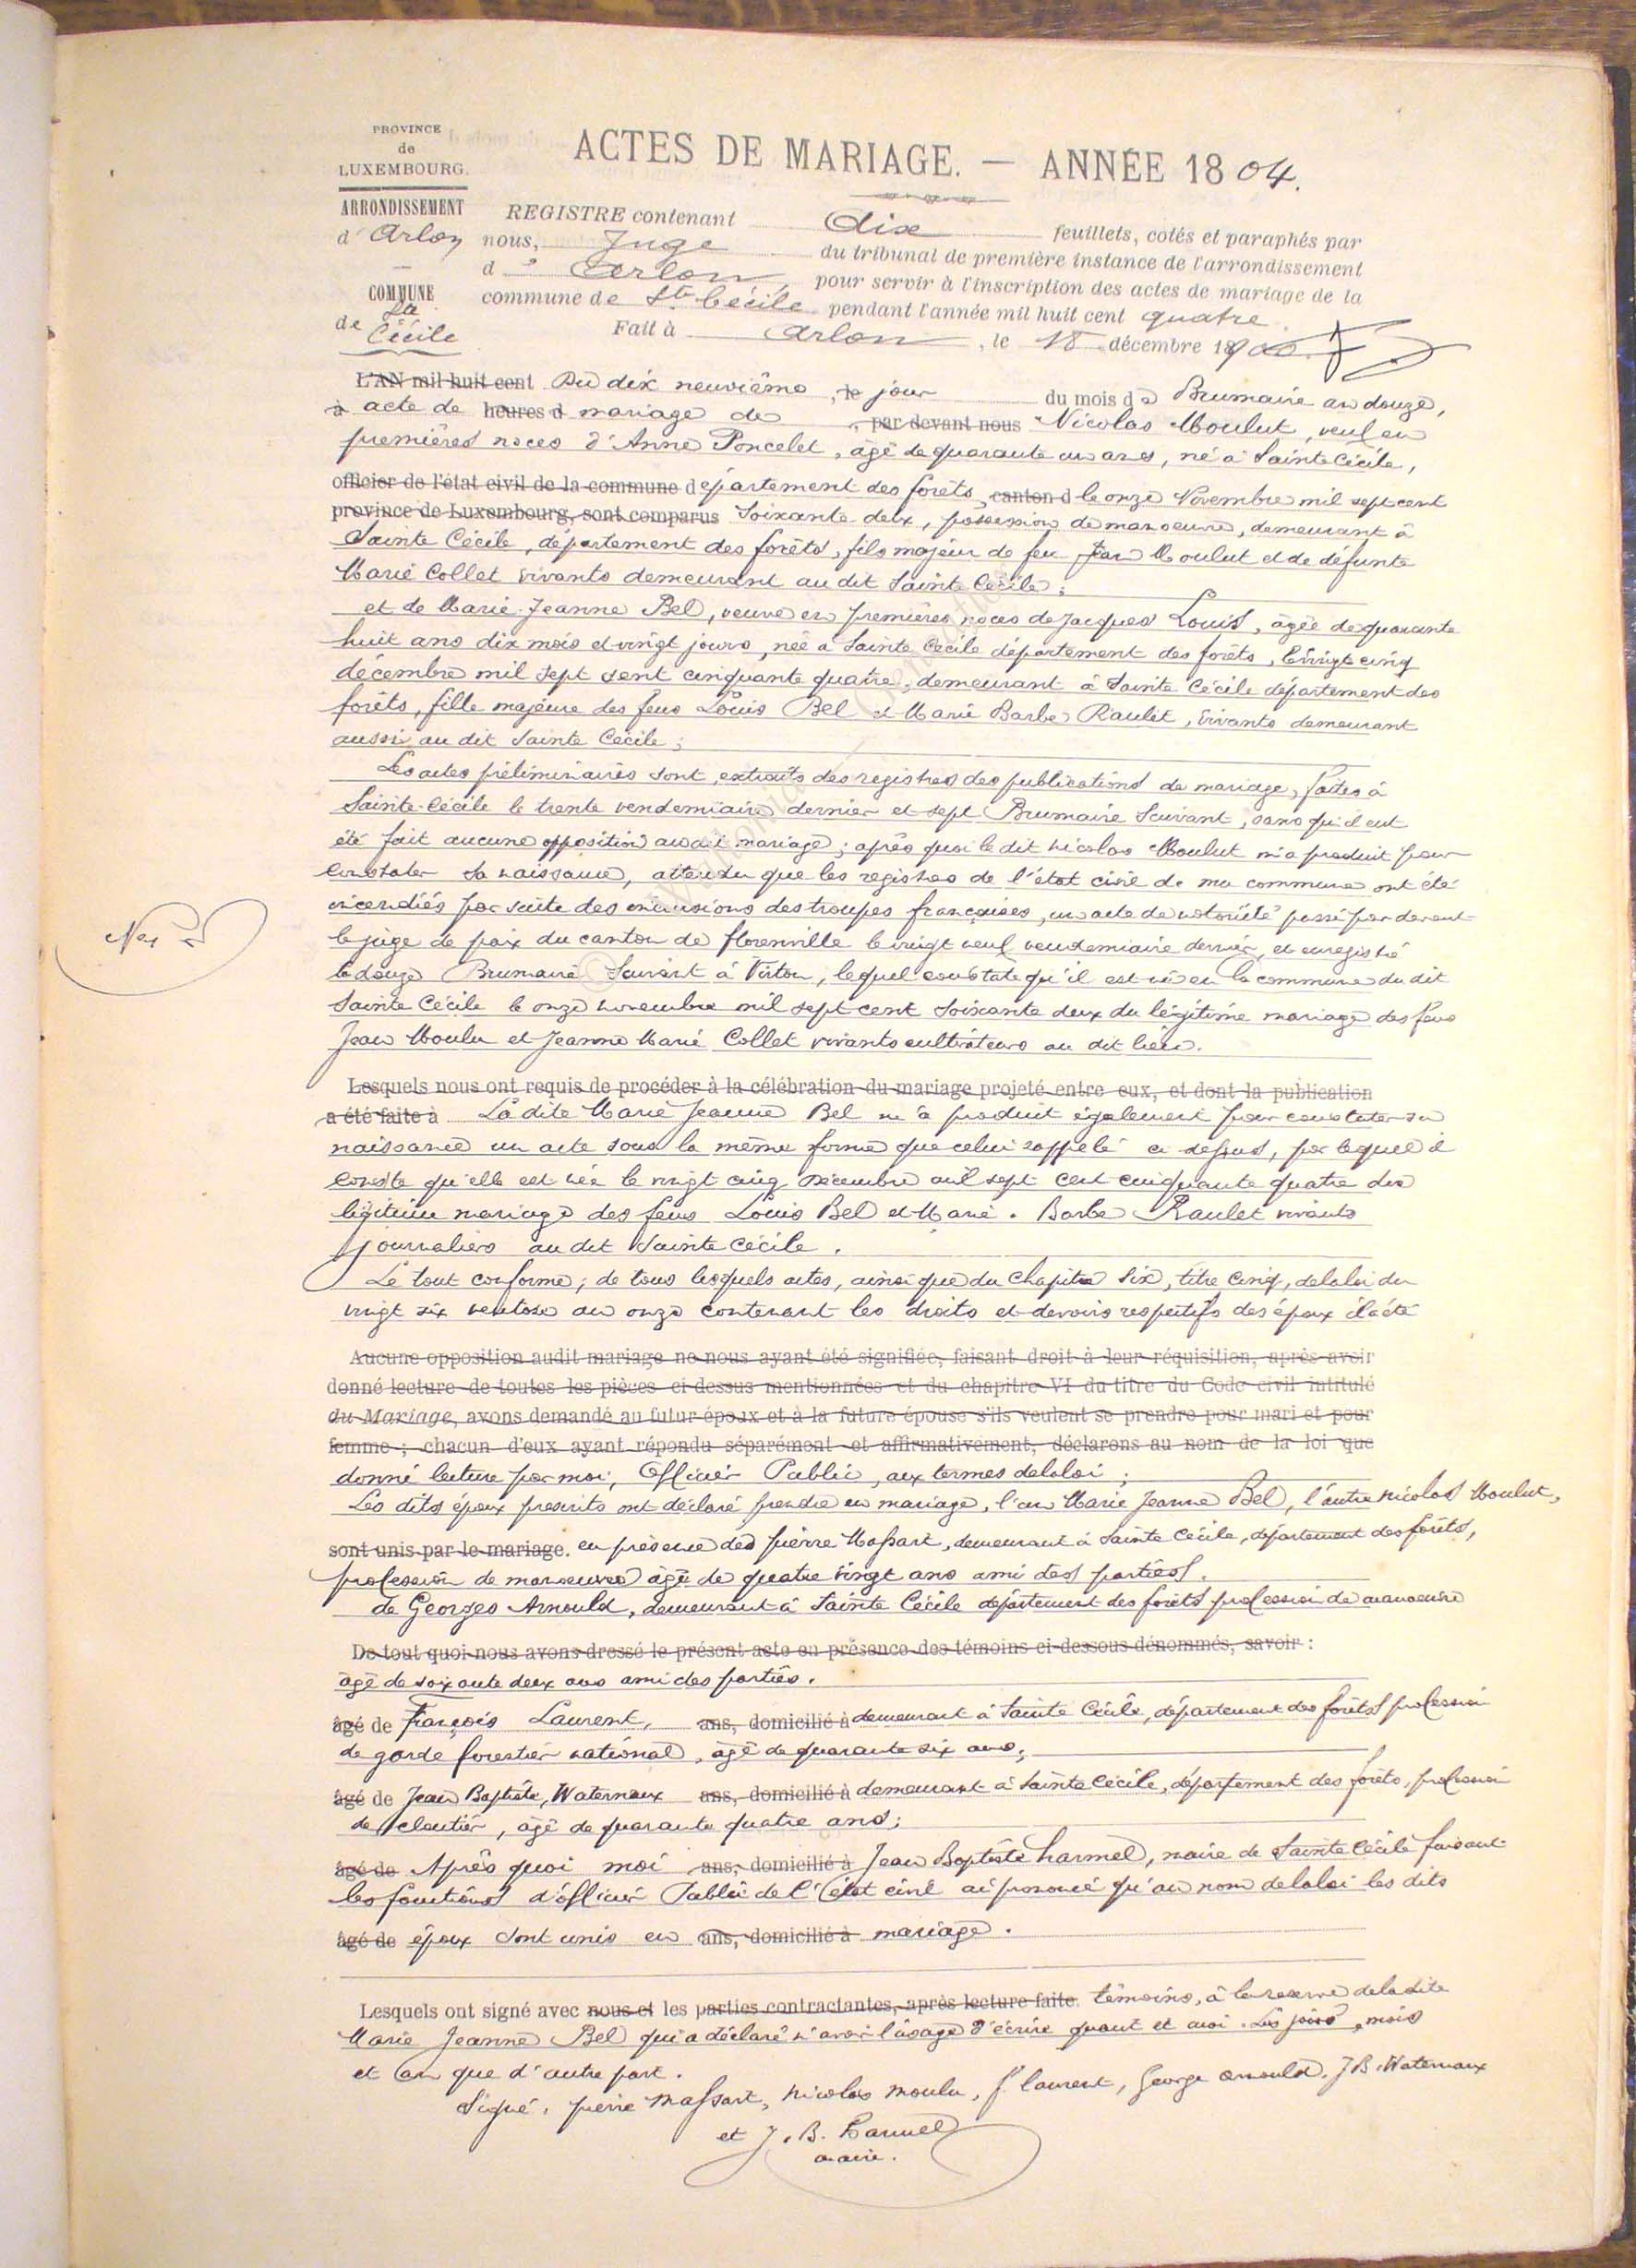 PROVINCE
de
LUXEMBOURG.
ARRONDISSEMENT
d'Arlon
COMMUNE
de Ste
Cécile
ACTES DE MARIAGE. — ANNÉE 1804.
REGISTRE contenant dix feuillets, cotés et paraphés par
nous, Juge du tribunal de première instance de l'arrondissement
d'Arlon, pour servir à l'inscription des actes de mariage de la
commune de Ste Cécile pendant l'année mil huit cent quatre.
Fait à Arlon, le 18 décembre 1900.
L'AN mil huit cent Du dix neuvième, le jour du mois de Brumaire an douze,
à acte de heures d mariage de, par devant nous Nicolas Moulut, veuf en
premières noces d'Anne Poncelet, âgé de quarante un ans, né à Sainte Cécile,
officier de l'état civil de la commune département des forêts, canton d le onze Novembre mil sept cent
province de Luxembourg, sont comparus Soixante deux, possession de manoeuvre, demeurant à
Sainte Cécile, département des forêts, fils majeur de feu Jean Moulut et de défunte
Marie Collet vivants demeurant au dit Sainte Cécile;
et de Marie-Jeanne Bel, veuve en premières noces de Jacques Louis, âgée de quarante
huit ans dix mois et vingt jours, née à Sainte Cécile département des forêts, le vingt cinq
décembre mil sept cent cinquante quatre, demeurant à Sainte Cécile département des
forêts, fille majeure des feus Louis Bel et Marie Barbe Raulet, vivants demeurant
aussi au dit Sainte Cécile;
Les actes préliminaires sont extraits des registres des publications de mariage, faites à
Sainte-Cécile le trente vendemiaire dernier et sept Brumaire Suivant, sans qu'il eut
été fait aucune opposition audit mariage; après quoi le dit Nicolas Moulut m'a produit pour
constater sa naissance, attendu que les registres de l'état civil de ma commune ont été
incendiés par suite des incursions des troupes françaises, un acte de notoriété passé par devant
le juge de paix du canton de florenville le vingt neuf vendemiaire dernier, et enregistré
le douze Brumaire Suivant à Virton, lequel constate qu'il est né en la commune du dit
Sainte Cécile le onze novembre mil sept cent soixante deux du légitime mariage des feus
Jean Moulu et Jeanne Marie Collet vivants cultivateurs au dit lieu.
No 2
Lesquels nous ont requis de procéder à la célébration du mariage projeté entre eux, et dont la publication
a été faite à La dite Marie Jeanne Bel m'a produit également pour constater sa
naissance un acte sous la même forme que celui rappelé ci dessus, par lequel il
conste qu'elle est née le vingt cinq Décembre mil sept cent cinquante quatre du
légitime mariage des feus Louis Bel et Marie. Barbe Raulet vivants
journaliers au dit Sainte Cécile.
Le tout conforme; de tous lesquels actes, ainsi que du Chapitre Six, titre Cinq, de la loi du
vingt six ventose an onze contenant les droits et devoirs respectifs des époux il a été
Aucune opposition audit mariage ne nous ayant été signifiée, faisant droit à leur réquisition, après avoir
donné lecture de toutes les pièces ci-dessus mentionnées et du chapitre VI du titre du Code civil intitulé
du Mariage, avons demandé au futur époux et à la future épouse s'ils veulent se prendre pour mari et pour
femme; chacun d'eux ayant répondu séparément et affirmativement, déclarons au nom de la loi que
donné lecture par moi, Officier Public, aux termes de la loi;
Les dits époux présents ont déclaré prendre en mariage, l'un Marie Jeanne Bel, l'autre Nicolas Moulut,
sont unis par le mariage. en présence des pierre Massart, demeurant à Sainte Cécile, département des forêts,
profession de manoeuvre âgé de quatre vingt ans ami des parties.
de Georges Arnould, demeurant à Sainte Cécile département des forêts profession de manoeuvre
De tout quoi nous avons dressé le présent acte en présence des témoins ci-dessous dénommés, savoir :
âgé de soixante deux ans ami des parties.
âgé de François Laurent, ans, domicilié à demeurant à Sainte Cécile, département des forêts profession
de garde forestier national, âgé de quarante six ans;
âgé de Jean Baptiste, Waternaux ans, domicilié à demeurant à Sainte Cécile, département des forêts, profession
de cloutier, âgé de quarante quatre ans;
âgé de Après quoi moi ans, domicilié à Jean Baptiste harmel, maire de Sainte Cécile faisant
les fonctions d'officier Public de l'état civil ai prononcé qu'au nom de la loi les dits
âgé de époux sont unis en ans, domicilié à mariage.
Lesquels ont signé avec nous et les parties contractantes, après lecture faite. témoins, à la reserve de la dite
Marie Jeanne Bel qui a déclaré n'avoir l'usage d'écrire quant et moi. Les jours, mois
et an que d'autre part.
Signé, pierre Massart, Nicolas Moulu, f. laurent, George arnould, J B. Waternaux
et J. B. harmel
maire.